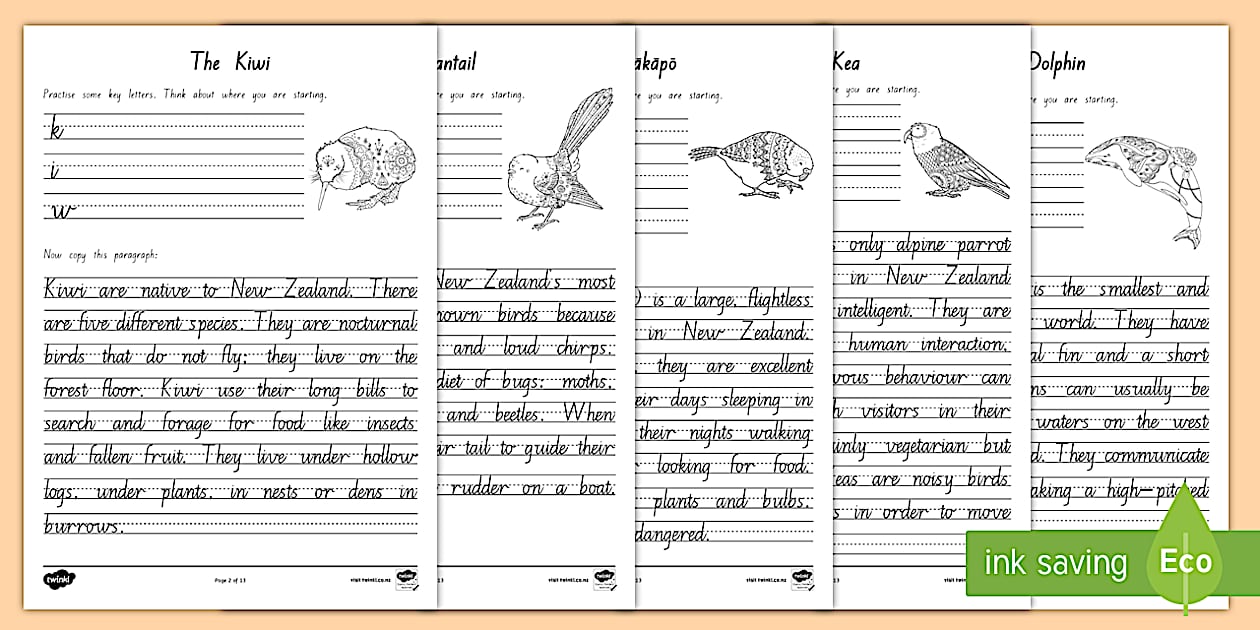 The Kiwi
Practise some key letters. Think about where you are starting.
k
i
w
Now copy this paragraph:
Kiwi are native to New Zealand. There
are five different species. They are nocturnal
birds that do not fly; they live on the
forest floor. Kiwi use their long bills to
search and forage for food like insects
and fallen fruit. They live under hollow
logs, under plants, in nests or dens in
burrows.
twinkl
Page 2 of 13
visit twinkl.co.nz
antail
you are starting.
New Zealand's most
nown birds because
and loud chirps.
diet of bugs: moths,
and beetles. When
ir tail to guide their
rudder on a boat.
13
visit twinkl.co.nz
ākāpō
you are starting.
) is a large, flightless
in New Zealand.
they are excellent
eir days sleeping in
their nights walking
looking for food.
plants and bulbs.
dangered.
13
visit twinkl.co.nz
Kea
you are starting.
s only alpine parrot
in New Zealand
intelligent. They are
human interaction.
vous behaviour can
h visitors in their
inly vegetarian but
eas are noisy birds
s in order to move
13
visit twi
Dolphin
you are starting.
is the smallest and
world. They have
al fin and a short
ns can usually be
waters on the west
d. They communicate
aking a high-pitched
ink saving
Eco